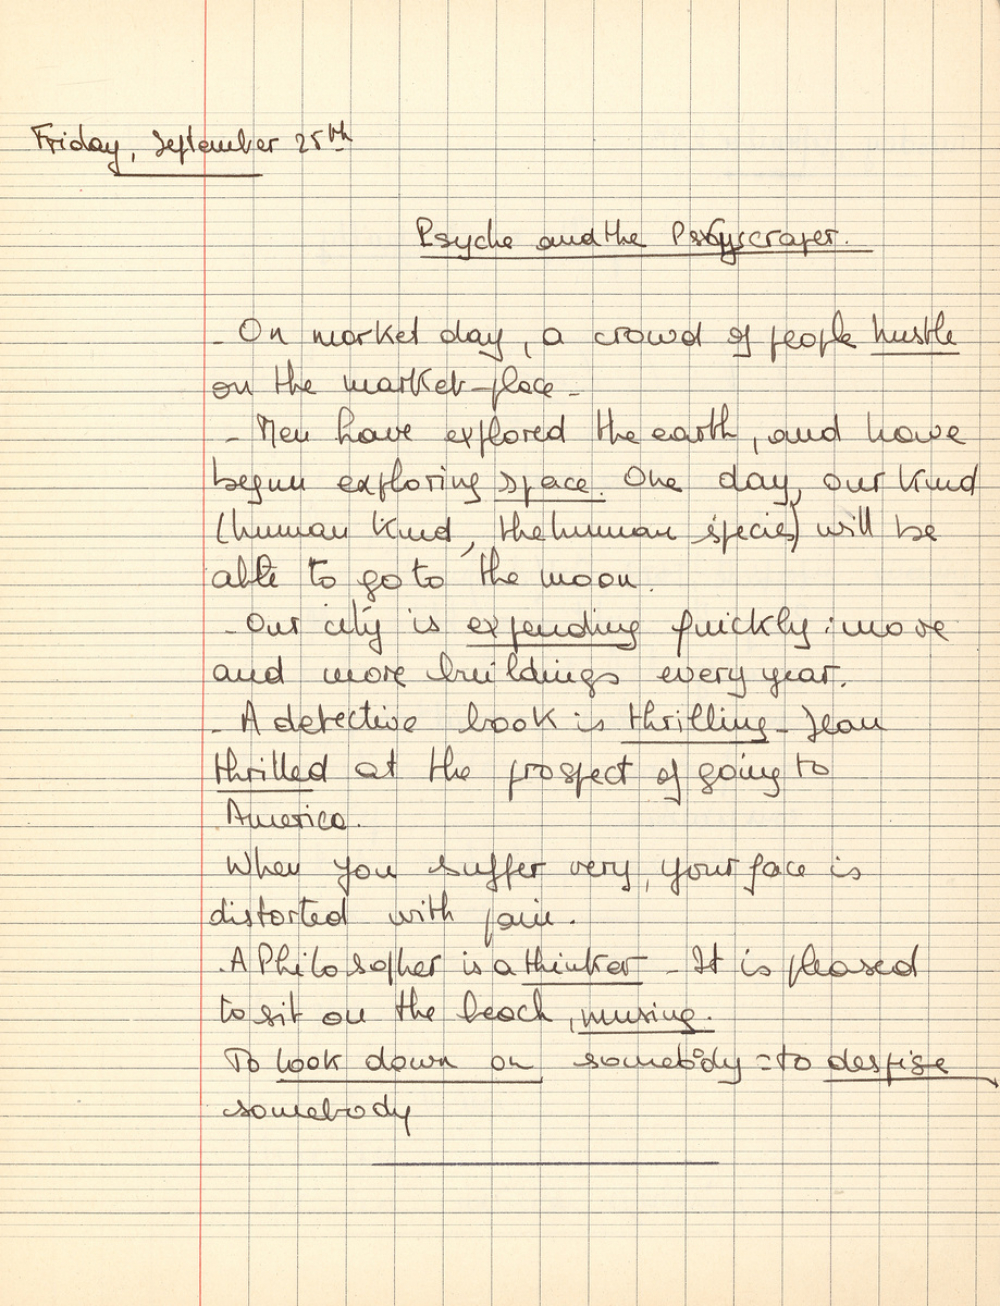 Friday, September 25th
Psyche and the Pskyscraper.
- On market day, a crowd of people hustle
on the market-place -
- Men have explored the earth, and have
begun exploring space. One day, our kind
(human kind, the human species) will be
able to go to the moon.
- Our city is expending quickly : more
and more buildings every year.
- A detective book is thrilling - Jean
thrilled at the prospect of going to
America.
When you suffer very, your face is
distorted with pain.
. A Philosopher is a thinker - It is pleased
to sit on the beach, musing.
To look down on somebody = to despise
somebody